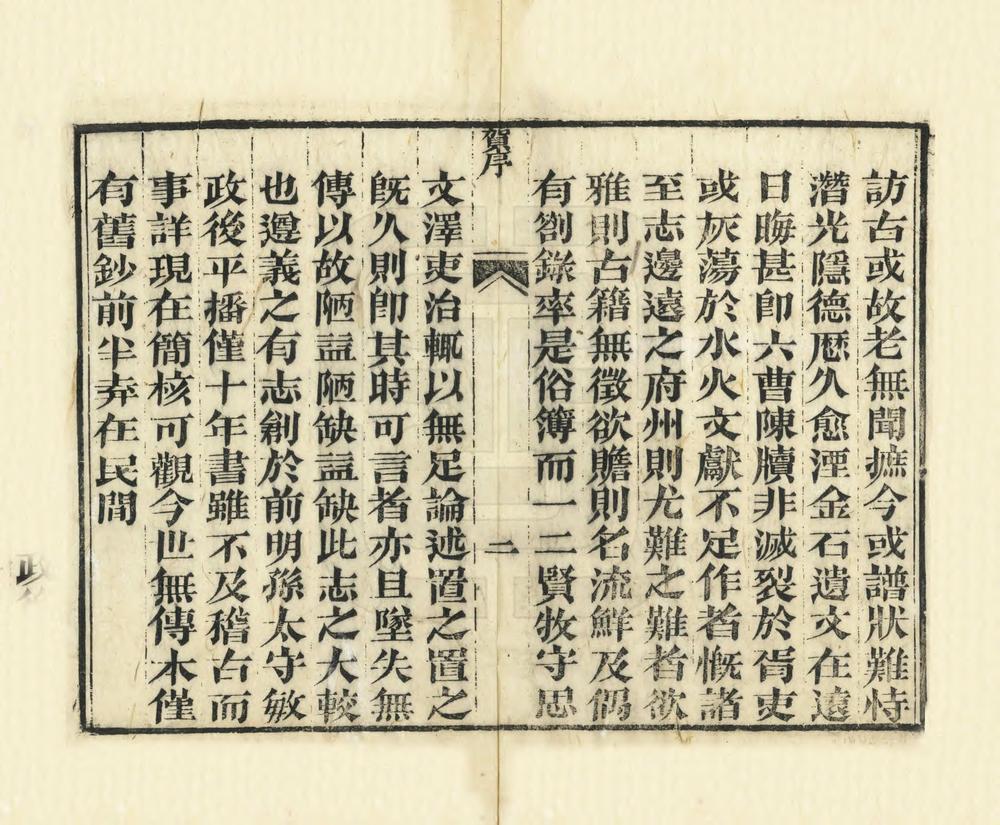 訪古或故老無聞摭今或譜狀難恃
潛光隱德厯久愈湮金石遺文在遠
日晦甚卽六曹陳牘非滅裂於胥吏
或灰蕩於水火文獻不足作者慨諸
至志邊遠之府州則尤難之難者欲
雅則古籍無徵欲贍則名流鮮及偶
有劄錄率是俗簿而一二賢牧守思
賀序
二
文澤吏治輒以無足論述置之置之
旣久則卽其時可言者亦且墜失無
傳以故陋益陋缺益缺此志之大較
也遵義之有志創於前明孫太守敏
政後平播僅十年書雖不及稽古而
事詳現在簡核可觀今世無傳本僅
有舊鈔前半弆在民間